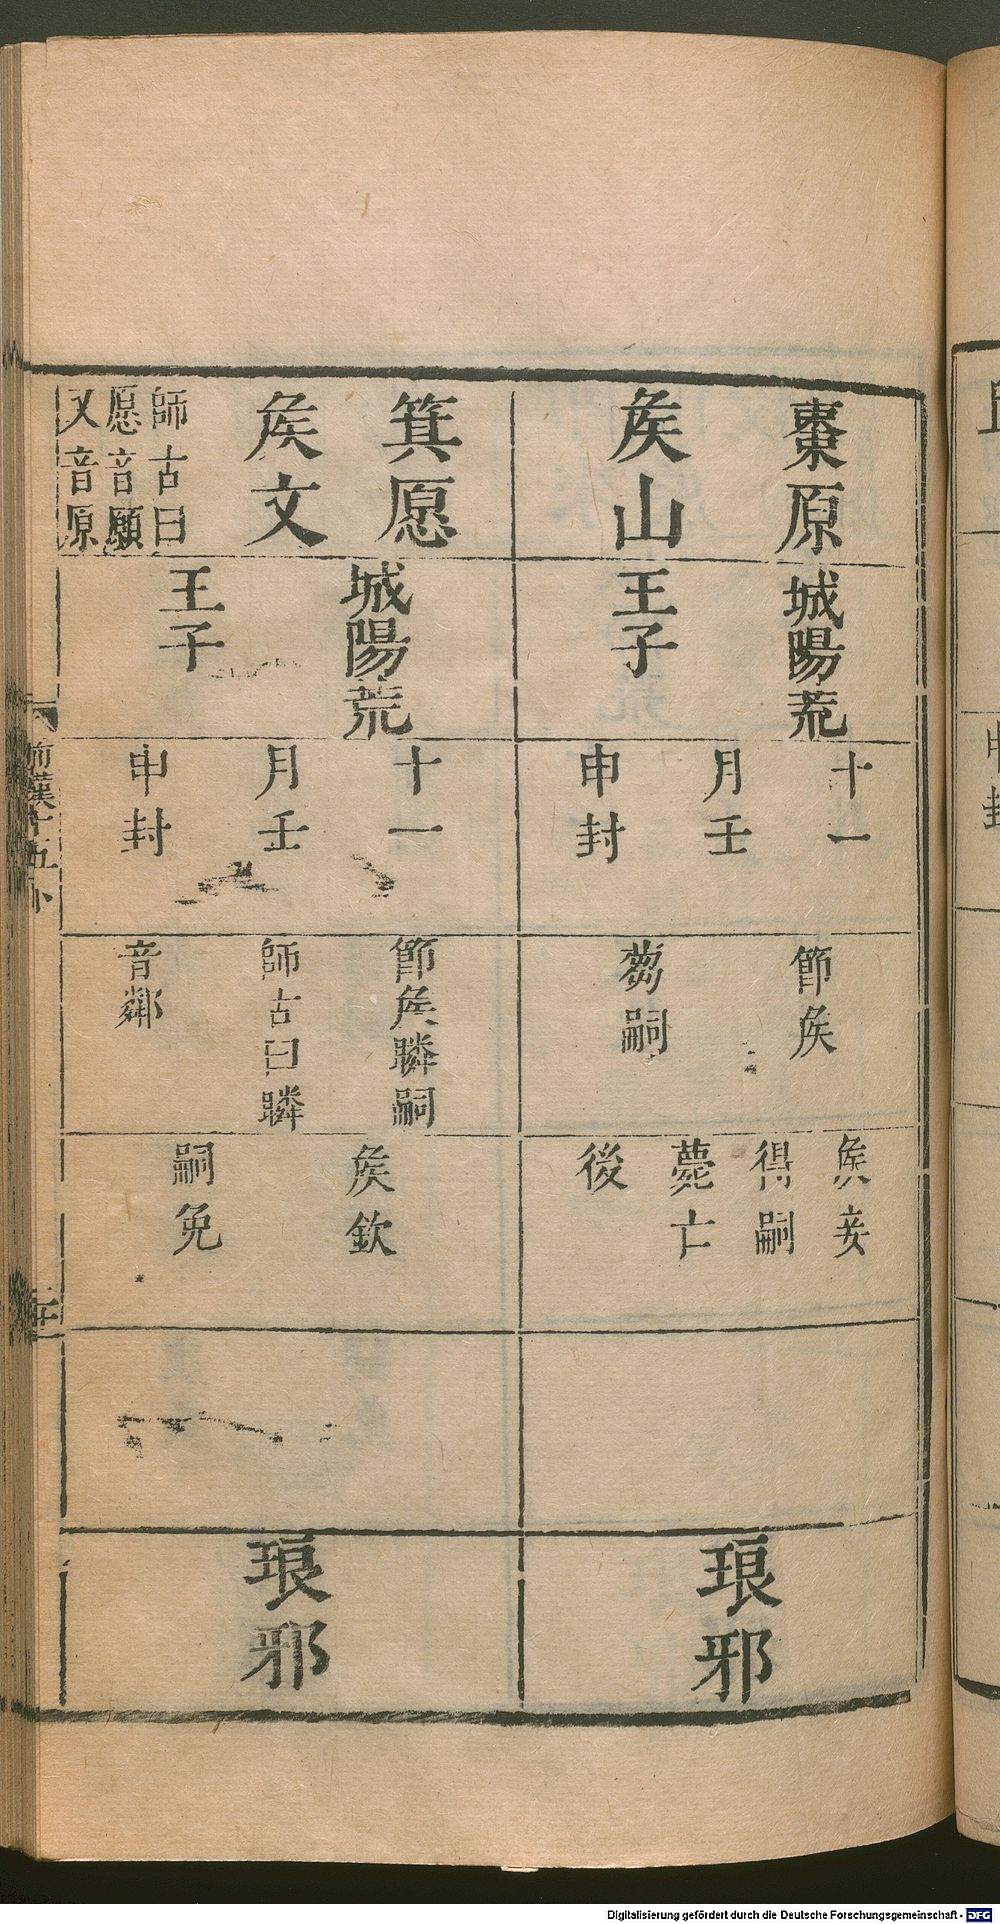 棗原
矦山
城陽荒
王子
十一
月壬
申封
節矦
嗣
矦妾
得嗣
薨亡
後
琅邪
箕愿
矦文
師古曰
愿音願
又音原
城陽荒
王子
十一
月壬
申封
節矦瞵嗣
師古曰瞵
音鄰
矦欽
嗣免
琅邪
前漢十五下
申封
Digitalisierung gefördert durch die Deutsche Forschungsgemeinschaft - DFG